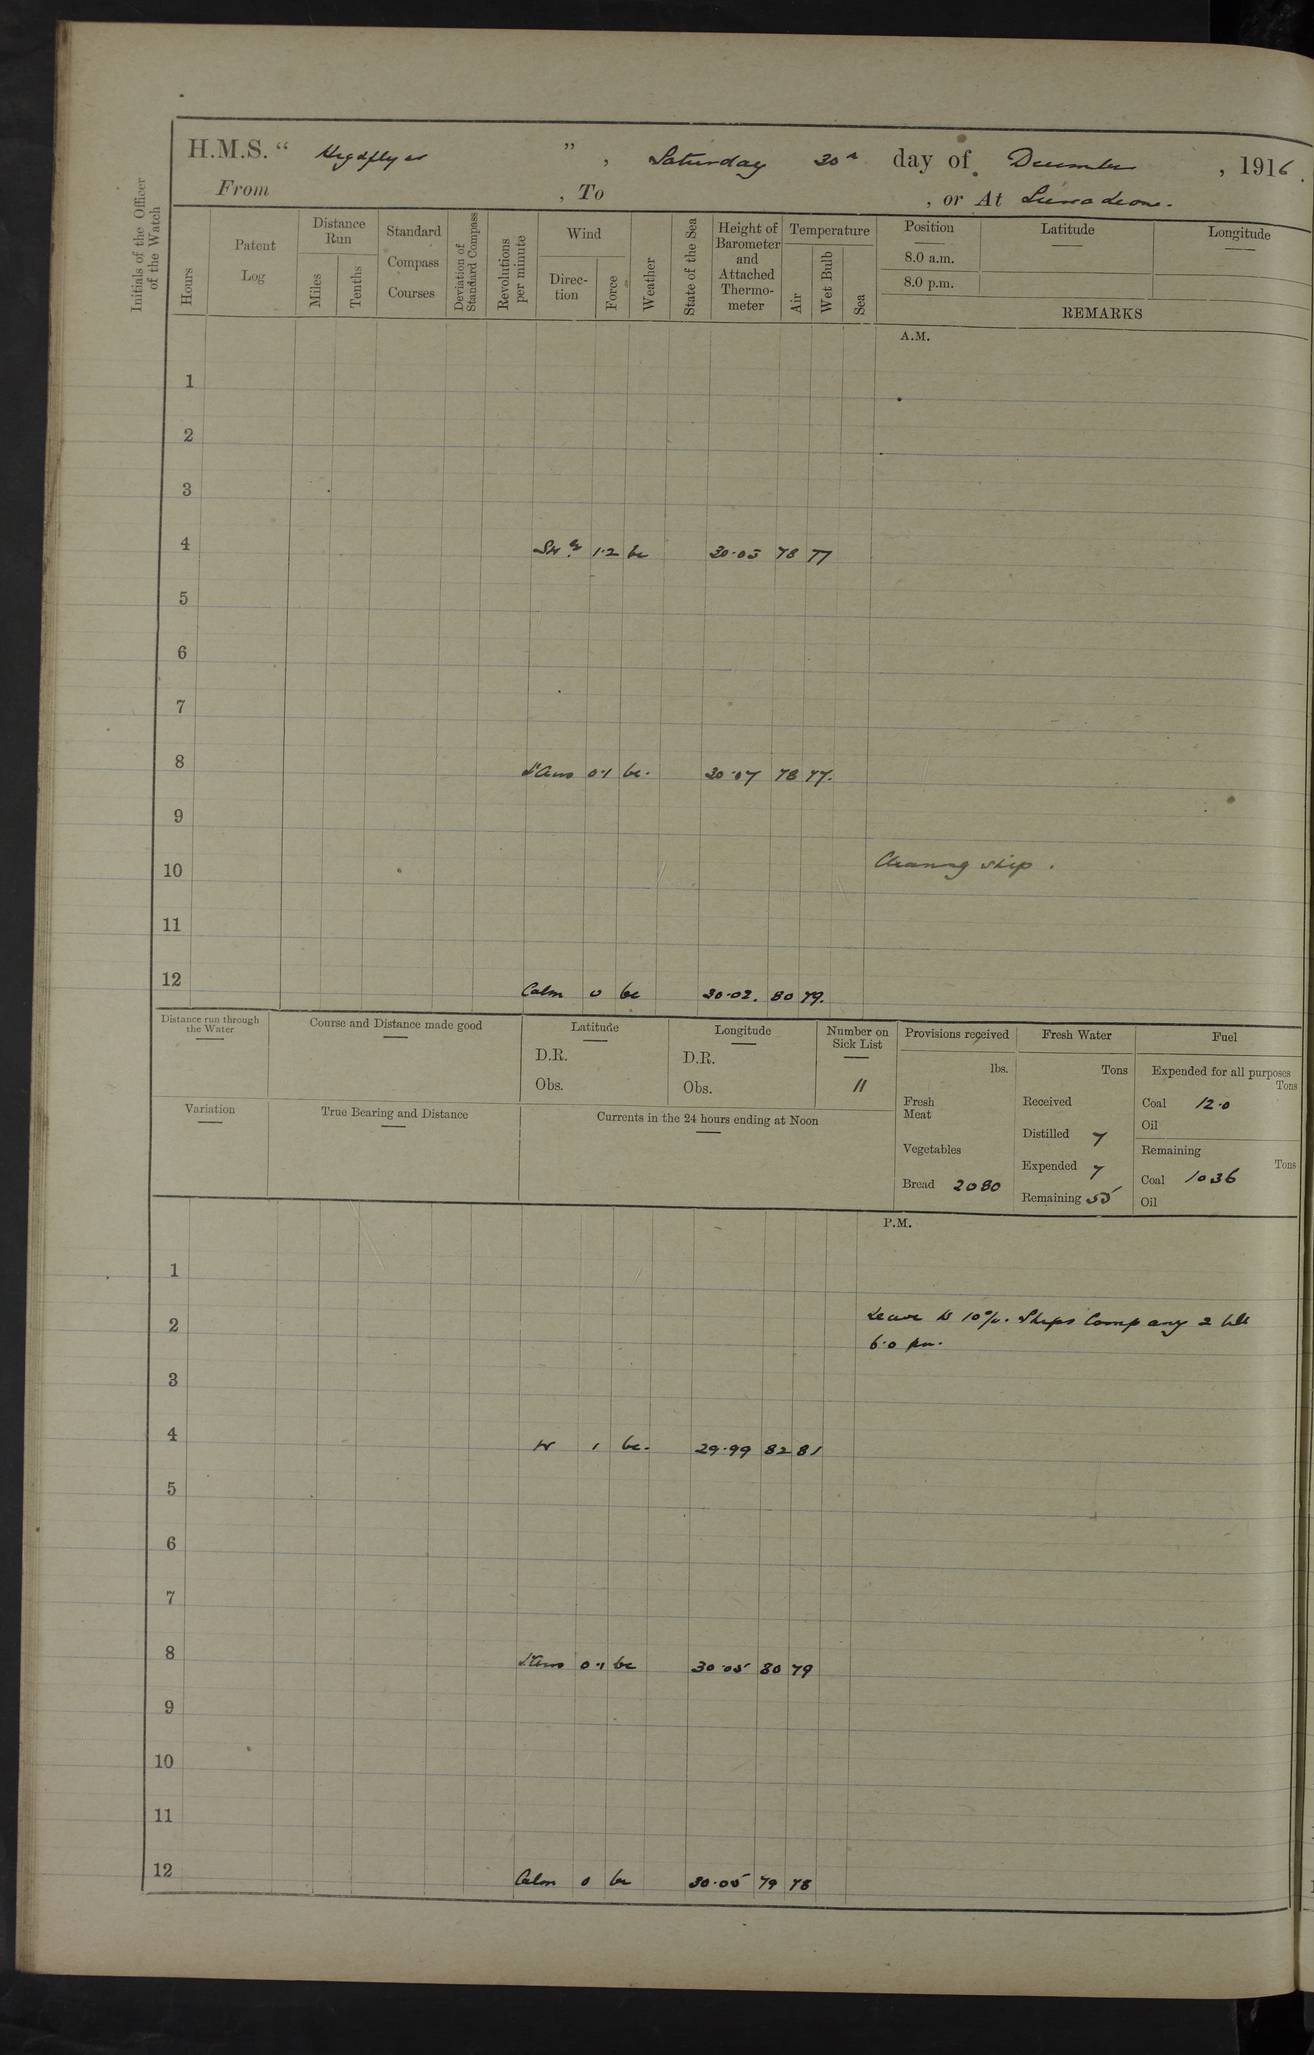 H.M.S. “ Highflyer ” , Saturday 30th day of December , 1916.
From , To , or At Sierra Leone.
Initials of the Officer of the Watch
Hours
Patent Log
Distance Run
Miles
Tenths
Standard Compass Courses
Deviation of Standard Compass
Revolutions per minute
Wind
Direction
Force
Weather
State of the Sea
Height of Barometer and Attached Thermometer
Temperature
Air
Wet Bulb
Sea
Position Latitude Longitude
8.0 a.m.
8.0 p.m.
REMARKS
A.M.
1
2
3
4 1.2 bc 30.05 78 77
5
6
7
8 L'Airs 0.1 bc. 30.07 78 77.
9
10 Cleaning ship.
11
12 Calm 0 bc 30.02. 80 79.
Distance run through the Water
Course and Distance made good
Latitude
D.R.
Obs.
Longitude
D.R.
Obs.
Number on Sick List
11
Variation
True Bearing and Distance
Currents in the 24 hours ending at Noon
Provisions received
lbs.
Fresh Meat
Vegetables
Bread 2080
Fresh Water
Tons
Received
Distilled 7
Expended 7
Remaining 55
Fuel
Expended for all purposes
Tons
Coal 12.0
Oil
Remaining
Tons
Coal 1036
Oil
P.M.
1
2 Leave to 10%. Ships Company 2 till
6.0 pm.
3
4 W 1 bc. 29.99 82 81
5
6
7
8 L'Airs 0.1 bc 30.05 80 79
9
10
11
12 Calm 0 bc 30.05 79 78